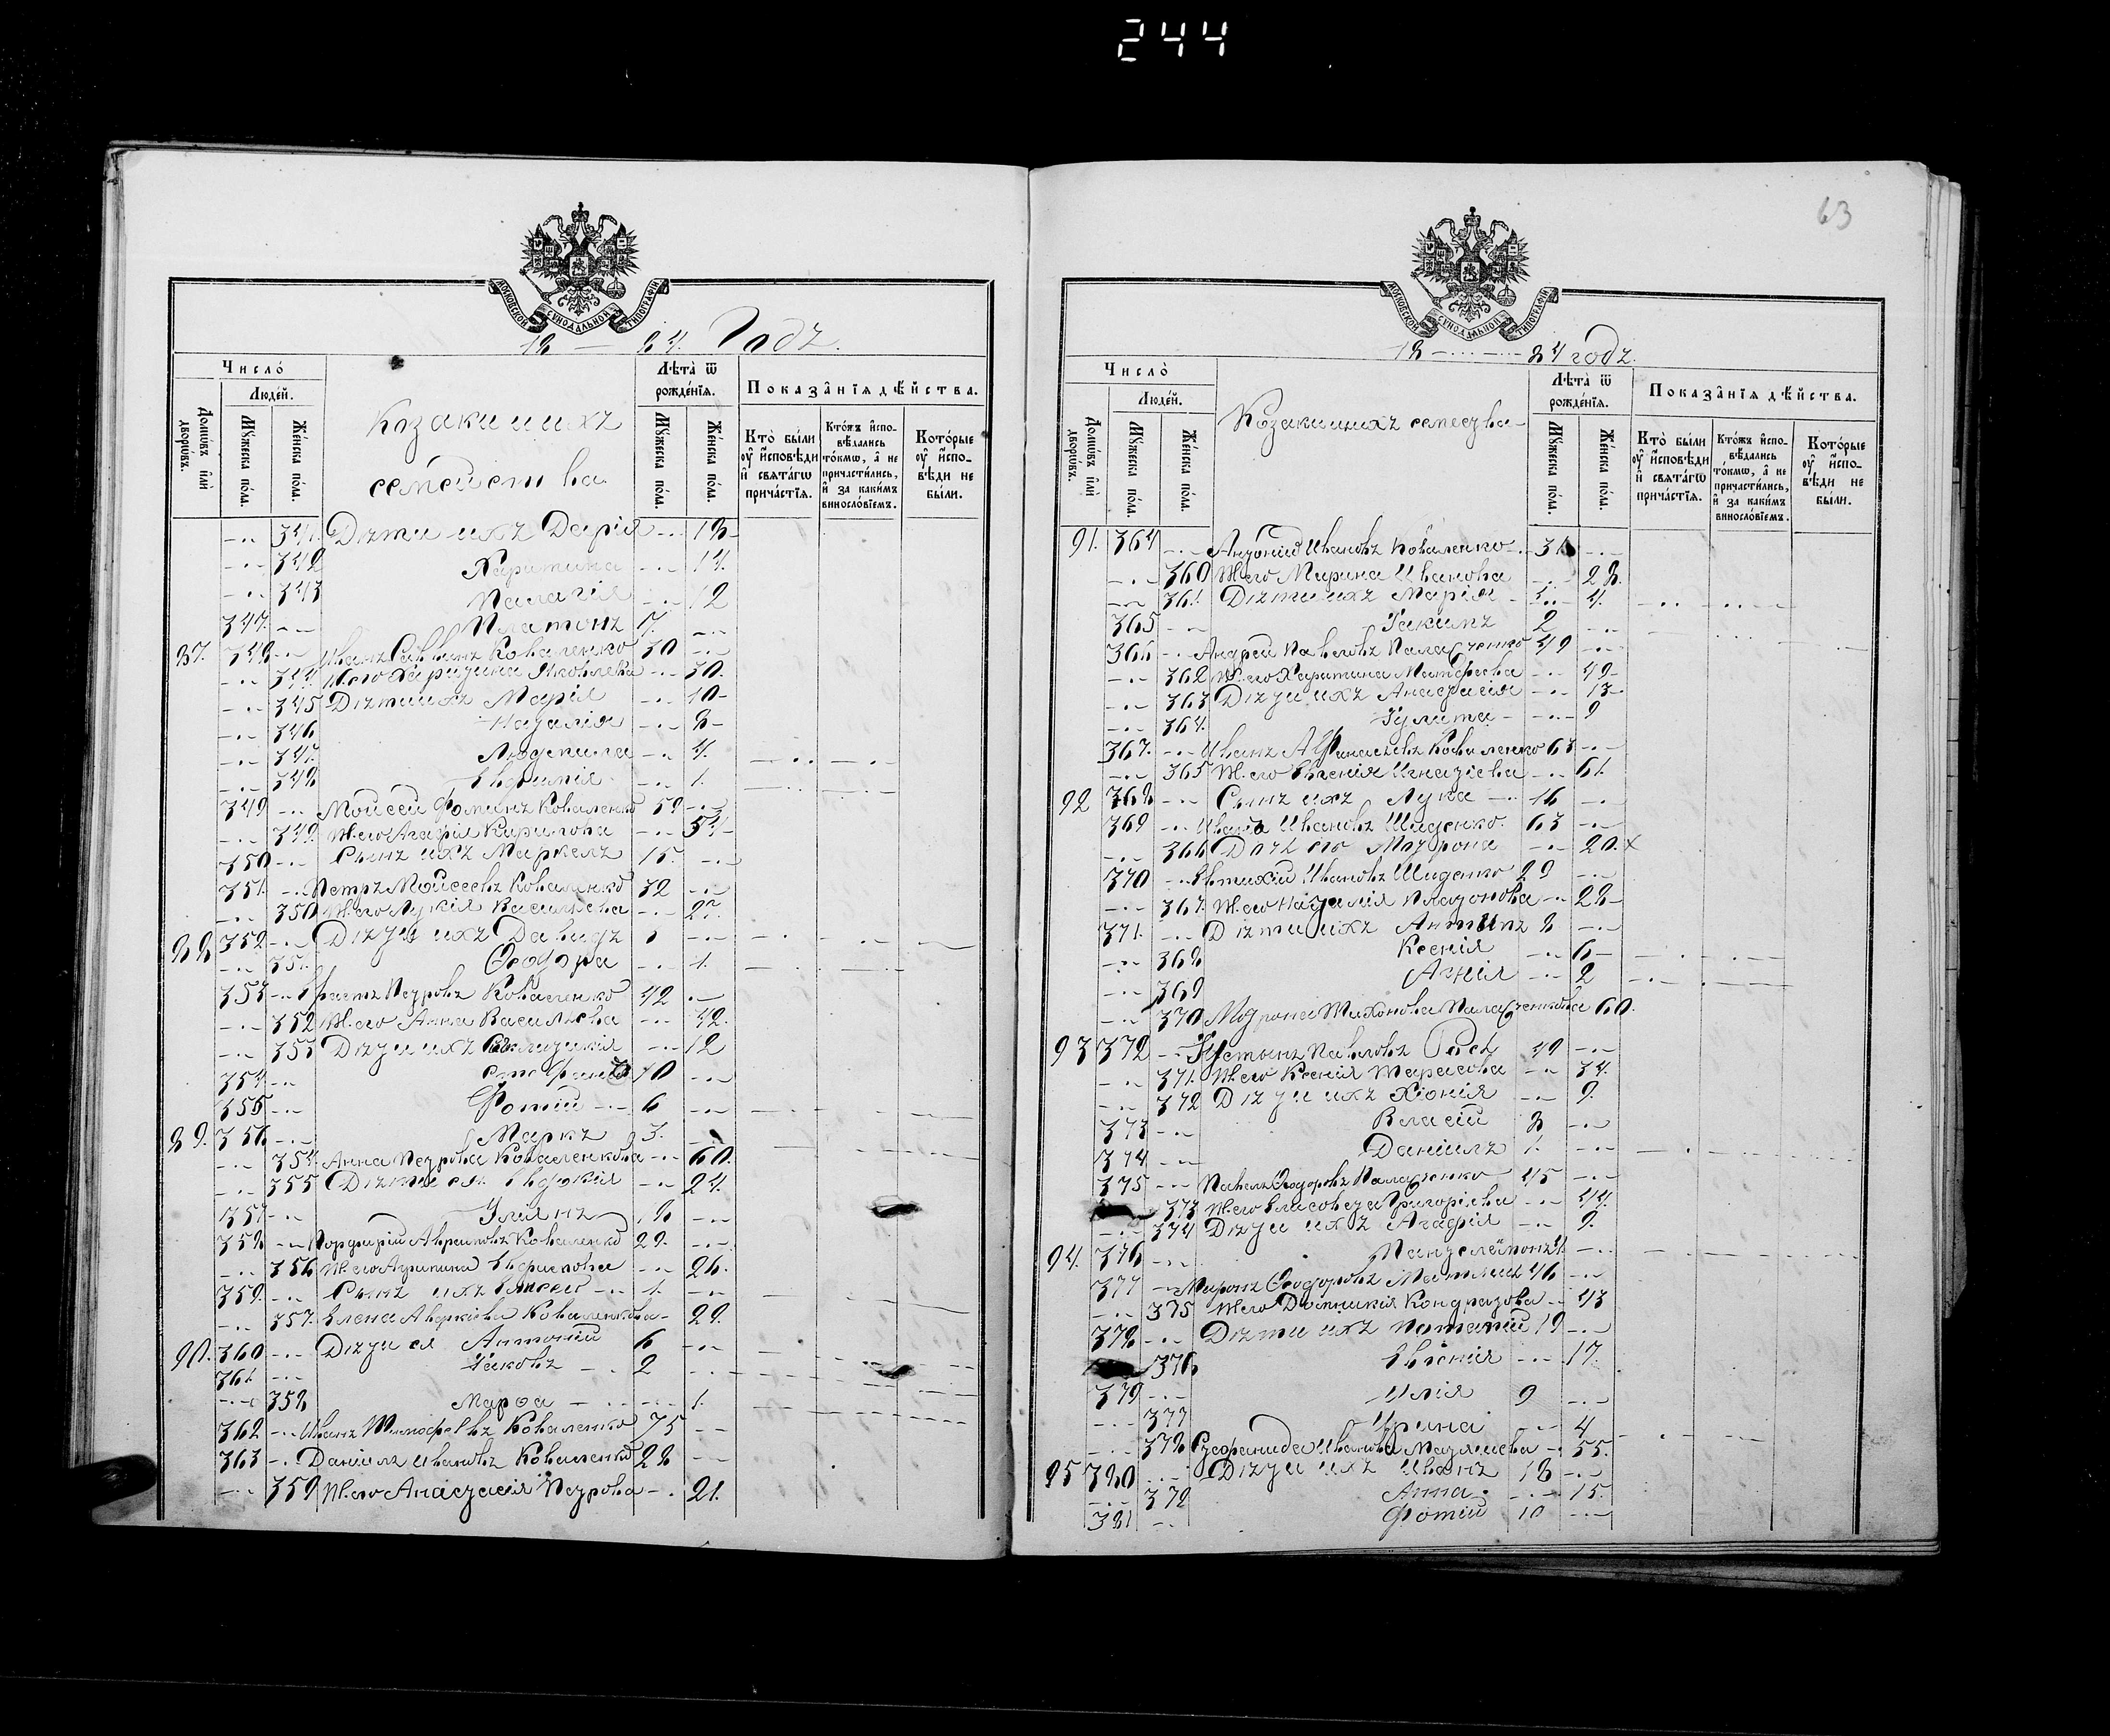 244
МОСКОВСКОЙ СУНОДАЛЬНОЙ ТИПОГРАФІИ
18 — 84. Годъ.
Число̀
Людей.
Домѡвъ и҆лѝ дворѡвъ.
Мꙋжеска пола.
Женска пола.
Козаки и ихъ
семейства
Лѣта̀ ѿ рожденїѧ.
Мꙋжеска пола.
Женска пола.
Показанїѧ дѣйства.
Кто̀ были ᲂу҆ и҆сповѣди и҆ свѧтагѡ причастїѧ.
Ктожъ и҆сповѣдались токмѡ, а҆ не причастились, и҆ за какимъ винословїемъ.
Которые ᲂу҆ и҆сповѣди не были.
341. Дѣти ихъ Дарія 18
342 Харитина 14.
343 Палагія 12
347. Платонъ 7.
87. 348 Иванъ Саввинъ Коваленко 30
344 Ж. его Харитина Яковлева 30.
345 Дѣти ихъ Марія 10
346 Наталія 8
347. Людмила 4.
348 Евфимія 1.
349 Мойсей Фоминъ Коваленко 59
349. Ж. его Агафія Кирилова 54
350 Сынъ ихъ Маркелъ 15.
351. Петръ Мойсеевъ Коваленко 32
350 Ж. его Лукія Васильева 27.
88 352 Дѣти ихъ Давидъ
351. Ѳеодора 1.
353 Петровъ Коваленко 42
352 Ж. его Анна Васильева 42.
353 Дѣти ихъ 12
354. 10
355 Фотій 6
89. 356 Маркъ 3.
354. Анна Петрова Коваленкова 60.
355 Дѣти ея Евдокія 24.
357 Уліянъ 18
358 Порфирій Авраамовъ Коваленко 29.
356 Ж. его Агрипина Ефимова 26.
359. Сынъ ихъ 1.
357. Елена Аверкіева Коваленкова 29.
90. 360 Дѣти ея Антоній 6
361. Іаковъ 2
358 Марѳа 1.
362 Иванъ Тимофѣевъ Коваленко 75
363 Даніилъ Ивановъ Коваленко 28
359 Ж. его Анастасія Петрова 21.
63
МОСКОВСКОЙ СУНОДАЛЬНОЙ ТИПОГРАФІИ
18 — 84 годъ.
Число̀
Людей.
Домѡвъ и҆лѝ дворѡвъ.
Мꙋжеска пола.
Женска пола.
Козаки и ихъ семейства
Лѣта̀ ѿ рожденїѧ.
Мꙋжеска пола.
Женска пола.
Показанїѧ дѣйства.
Кто̀ были ᲂу҆ и҆сповѣди и҆ свѧтагѡ причастїѧ.
Ктожъ и҆сповѣдались токмѡ, а҆ не причастились, и҆ за какимъ винословїемъ.
Которые ᲂу҆ и҆сповѣди не были.
91. 364 Антоній Ивановъ Коваленко 31
360 Ж. его Марина Иванова 28.
361. Дѣти ихъ Марія 4.
365 Іакимъ 2
366 Андрей Павловъ 49
362 Ж. его Харитина Матфеева 49
363 Дѣти ихъ Анастасія 13
364. Іулита 9
367. Иванъ Афанасьевъ Коваленко 63
365 Ж. его Евгенія Игнатіева 61.
92 368 Сынъ ихъ Лука 16
369 Иванъ Ивановъ Шиденко. 63
366 Дочь его Матрона 20. x
370 Евтихій Ивановъ Шиденко 29
367. Ж. его Наталія Платонова 28
371. Дѣти ихъ Антипъ 8
368 Ксенія 6
369 Агнія 2
370 Матрона Тихонова 60.
93 372 Устинъ Павловъ 49
371. Ж. его Ксенія Тарасова 34.
372 Дѣти ихъ Хіонія 9.
373 Власій 8
374 Даніилъ 1.
375 Павелъ Ѳеодоровъ 45
373 Ж. его Елисовета Григоріева 44.
374 Дѣти ихъ Агафія 9.
94. 376 Пантелеймонъ 4.
377 Миронъ Ѳеодоровъ 46
375 Ж. его Домникія Кондратова 43
378 Дѣти ихъ Потапій 19
376 Евгенія 17.
379 Илія 9
377 Ирина 4
378 Стефанида Иванова 55.
95 380 Дѣти ихъ Иванъ 18
379 Анна 15.
381 Фотій 10